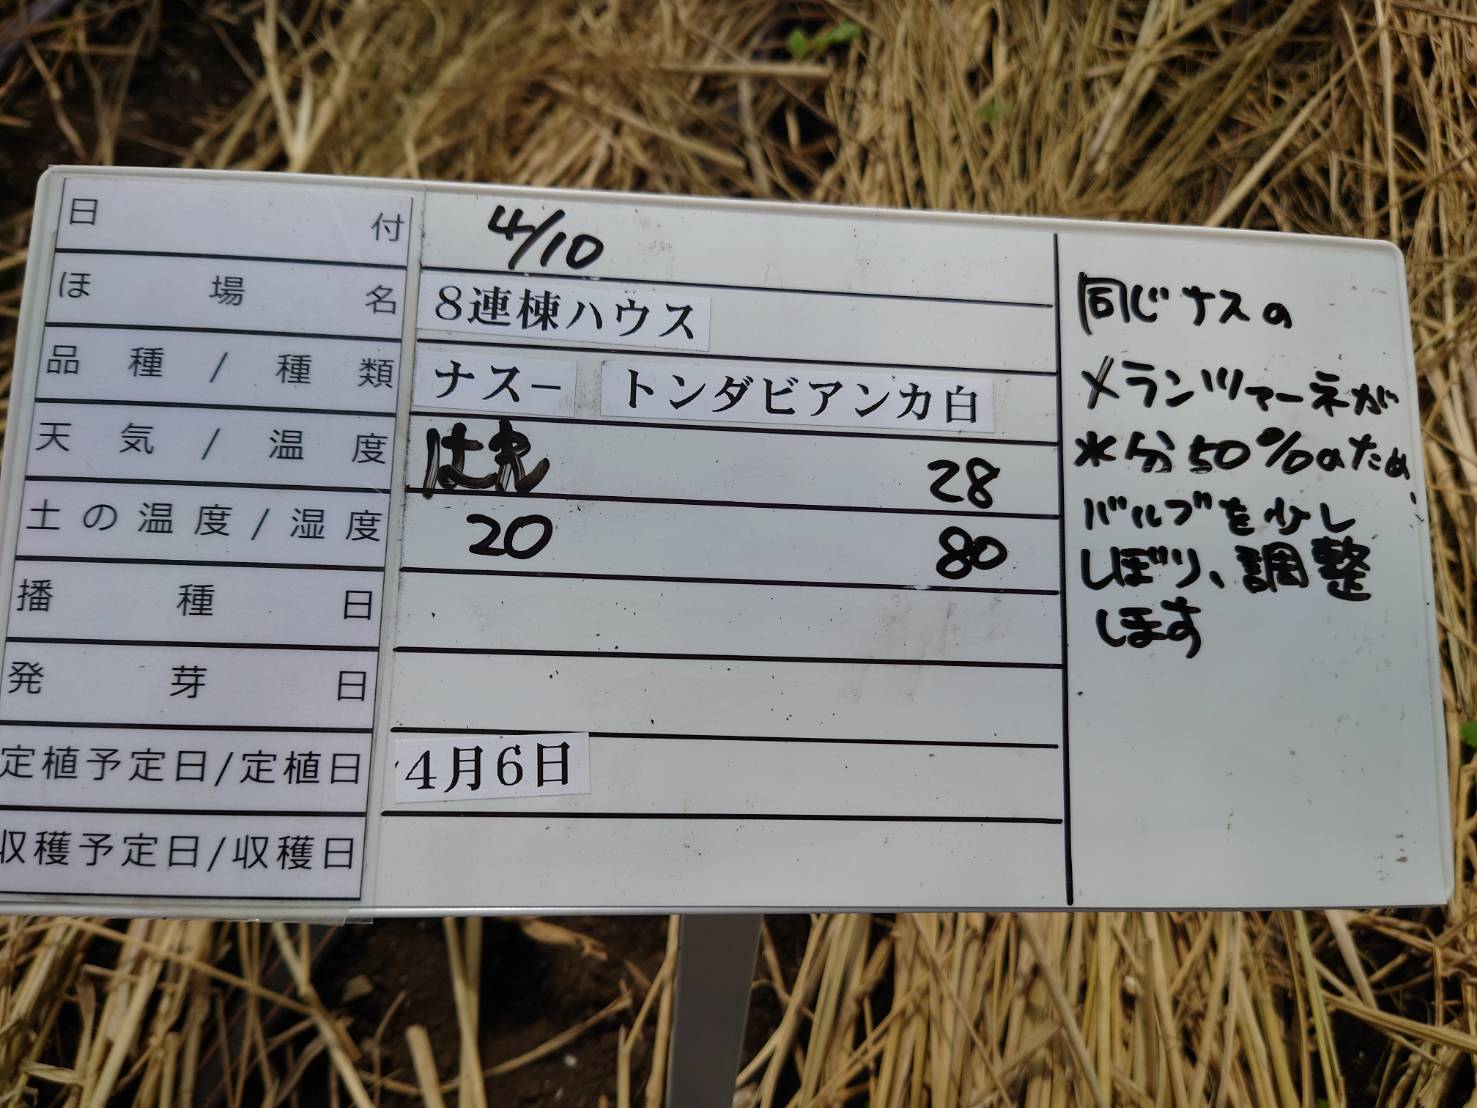 日付 4/10
ほ場名 8連棟ハウス
品種/種類 ナスー トンダビアンカ白
天気/温度 はれ 28
土の温度/湿度 20 80
播種日
発芽日
定植予定日/定植日 4月6日
収穫予定日/収穫日
同じナスの
メランツァーネが
水分50%のため、
バルブを少し
しぼり、調整
します